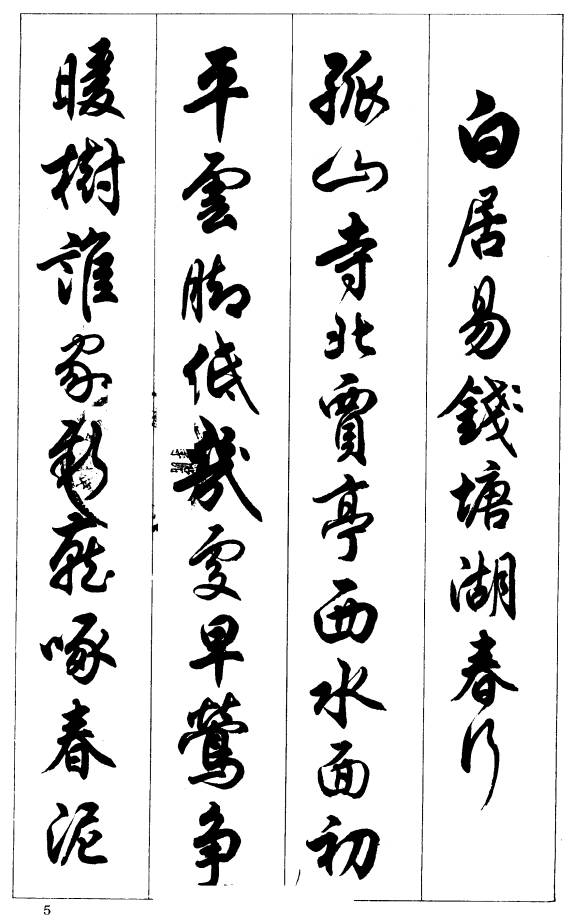 白居易錢塘湖春行
孤山寺北賈亭西水面初
平雲脚低幾處早鶯争
暖樹誰家新燕啄春泥
5